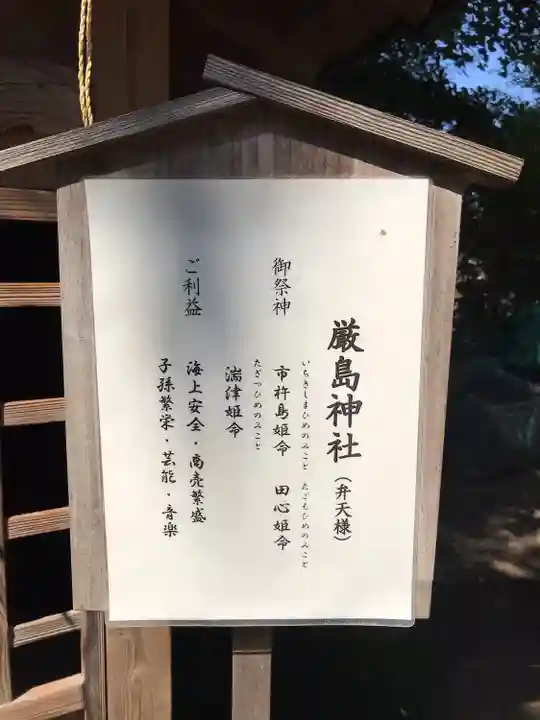 厳島神社（弁天様）
いちきしまひめのみこと　たごもひめのみこと
御祭神　市杵島姫命　田心姫命
たぎつひめのみこと
湍津姫命
ご利益　海上安全・商売繁盛
子孫繁栄・芸能・音楽